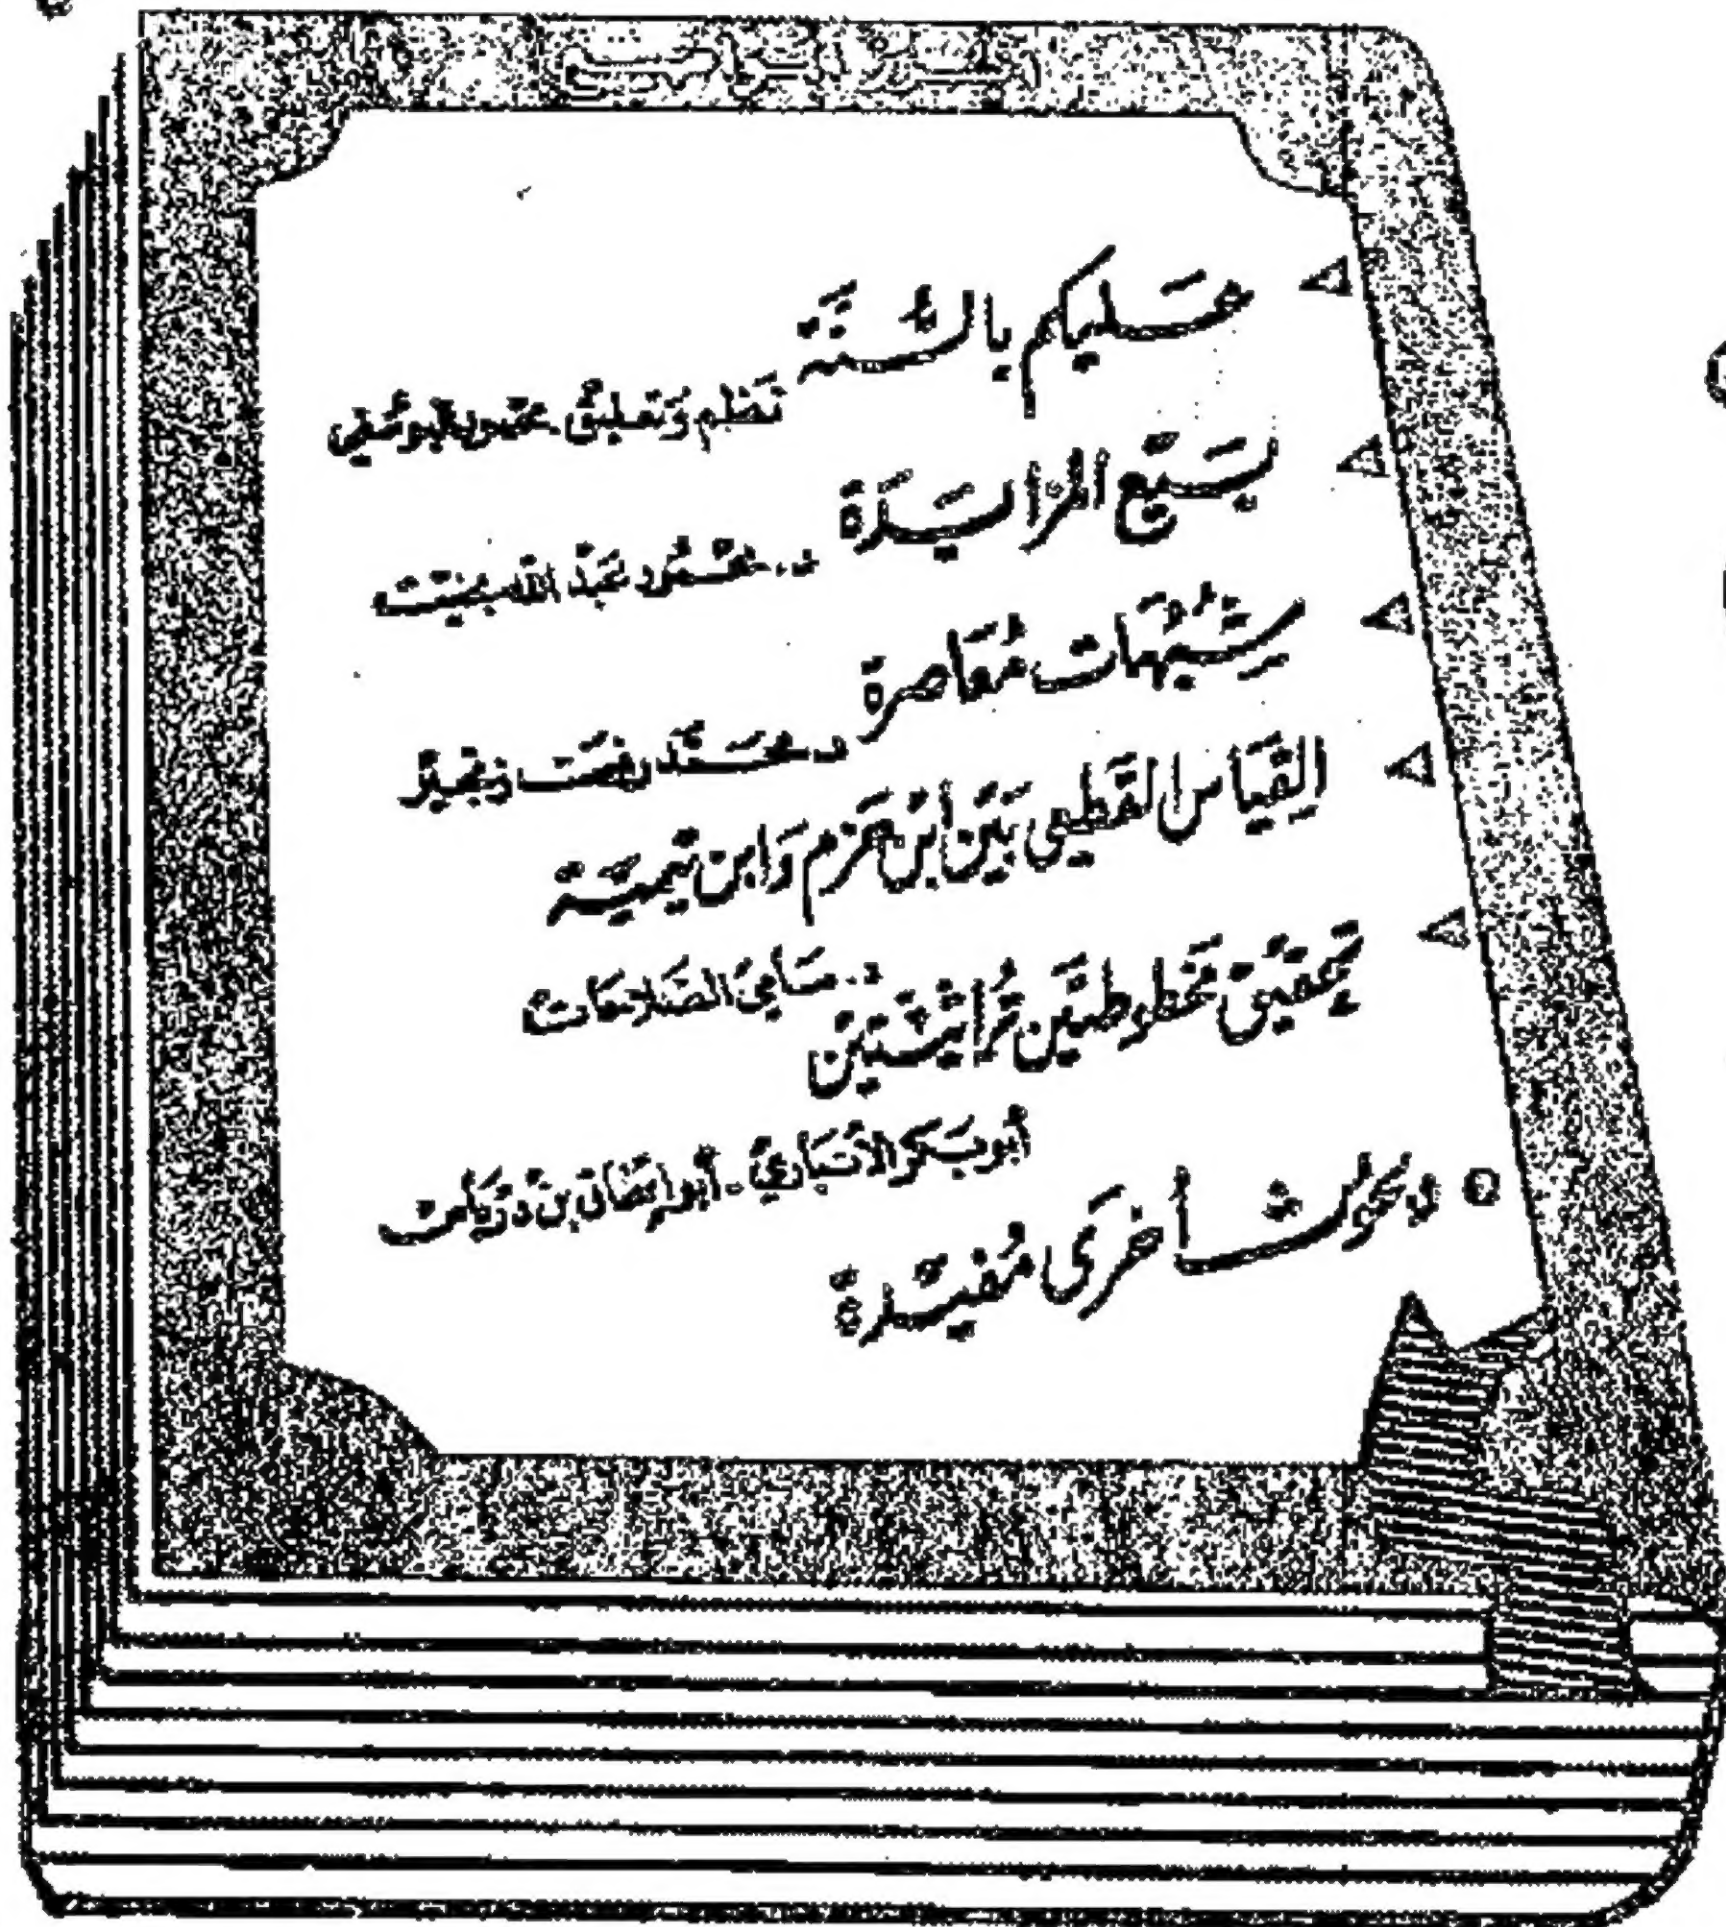 عليكم بالسنة
نظم وتعليق
بيع المزايدة
د. محمود عبد الله بخيت
شبهات معاصرة
د. محمد رفعت زنجير
القياس القطعي بين ابن حزم وابن تيمية
د. سامي الصلاحات
تحقيق مخطوطتين تراثيتين
أبو بكر الأنباري - أبو إسحاق بن
وبحوث أخرى مفيدة